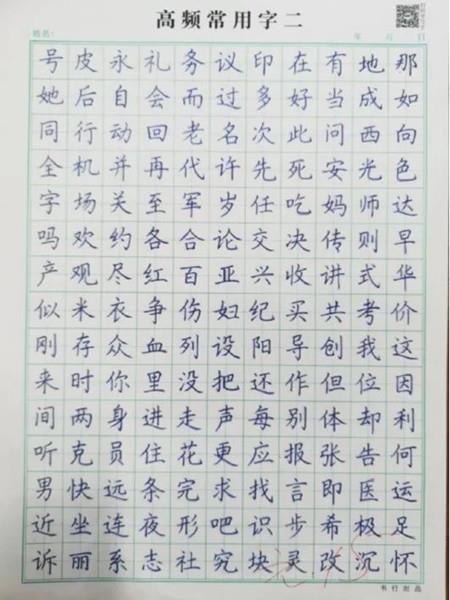 高频常用字二
姓名: 年 月 日
号皮永礼务议印在有地那
她后自会而过多好当成如
同行动回老名次此问西向
全机并再代许先死安光色
字场关至军岁任吃妈师达
吗欢约各合论交决传则早
产观尽红百亚兴收讲式华
似米衣争伤妇纪买共考价
刚存众血列设阳导创我这
来时你里没把还作但位因
间两身进走声每别体却利
听克员住花更应报张告何
男快远条完求找言即医运
近坐连夜形吧识步希极足
诉丽系志社究块灵改沉怀
书行出品